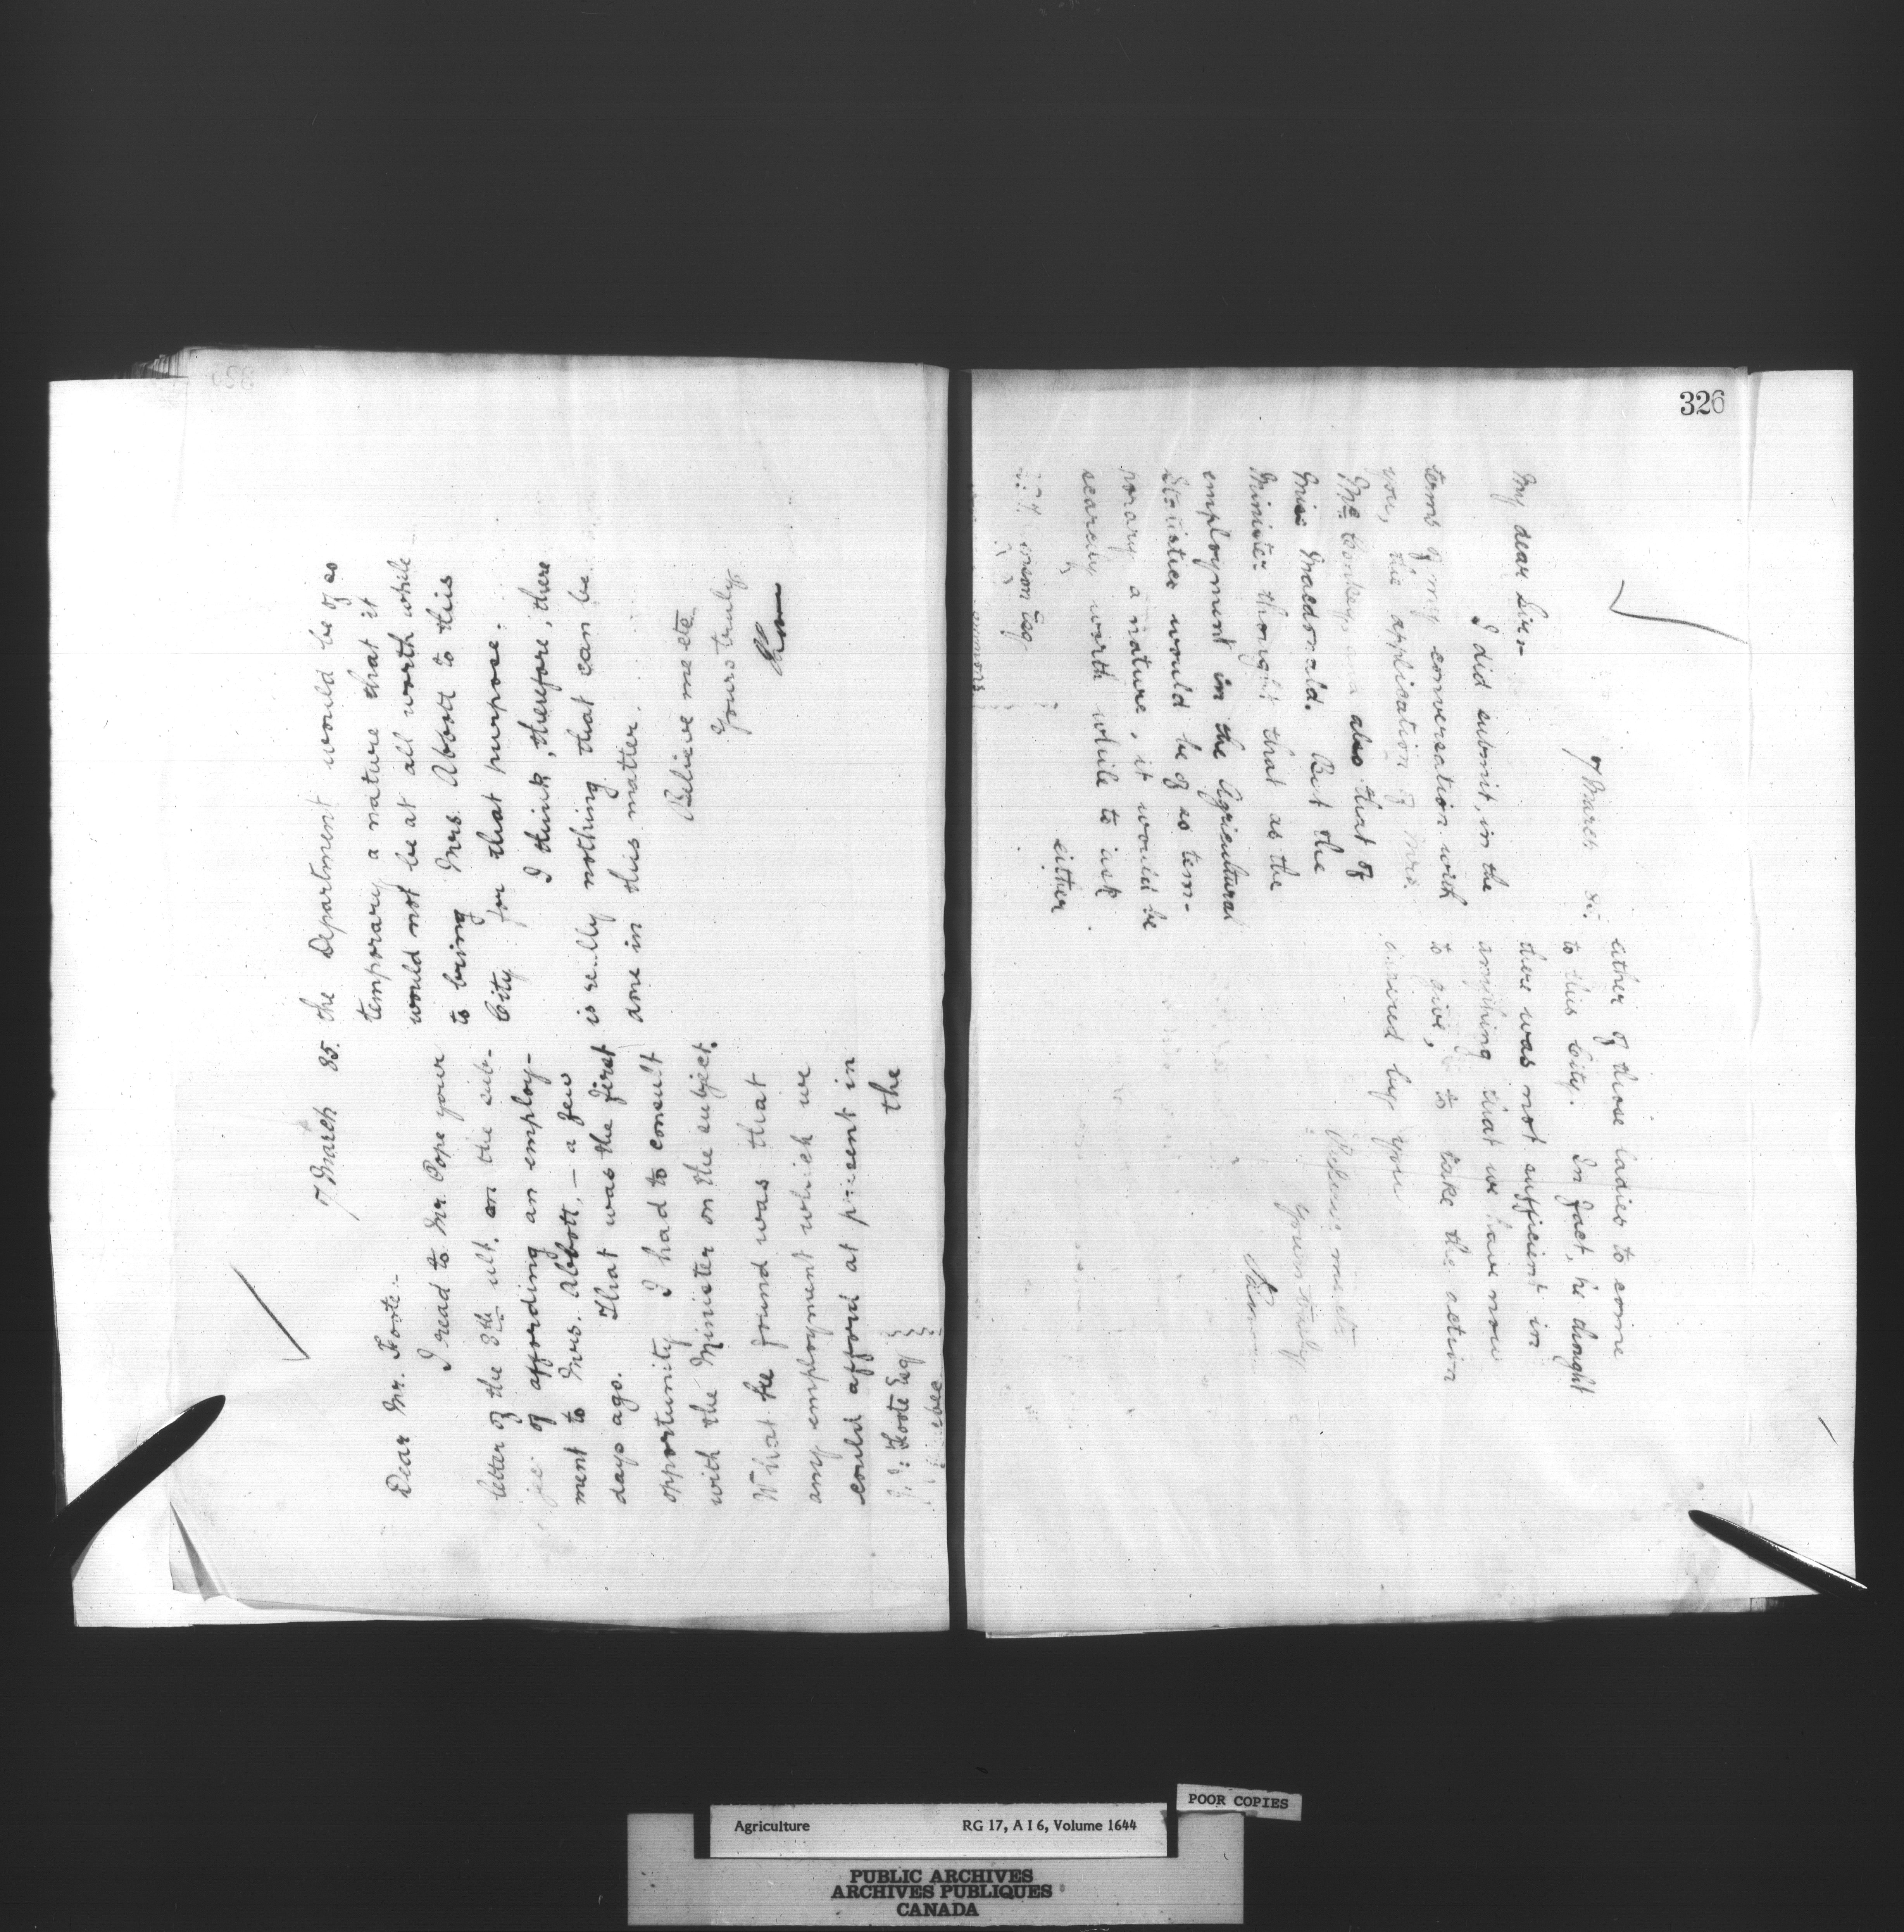 7 March 85.
Dear Mr. Foote:-
I read to Mr. Pope your
letter of the 8th ult. on the sub-
ject of affording an employ-
ment to Mrs. Abbott, — a few
days ago. That was the first
opportunity I had to consult
with the Minister on the subject.
What he found was that
any employment which we
could afford at present in
the
J. J. Foote Esq
the Department would be of so
temporary a nature that it
would not be at all worth while
to bring Mrs. Abbott to this
City for that purpose.
I think, therefore, there
is really nothing that can be
done in this matter.
Believe me etc
Yours truly
326
7 March 85.
My dear Sir:-
I did submit, in the
terms of my conversation with
you, the application of Mrs.
McConkey, and also that of
Miss Macdonald. But the
Minister thought that as the
employment in the Agricultural
Statistics would be of so tem-
porary a nature, it would be
scarcely worth while to ask
either
Esq
Commons
either of those ladies to come
to this City. In fact, he thought
there was not sufficient in
anything that we have now
to give, to take the action
desired by you
Believe me etc
Yours truly
POOR COPIES
Agriculture RG 17, A I 6, Volume 1644
PUBLIC ARCHIVES
ARCHIVES PUBLIQUES
CANADA